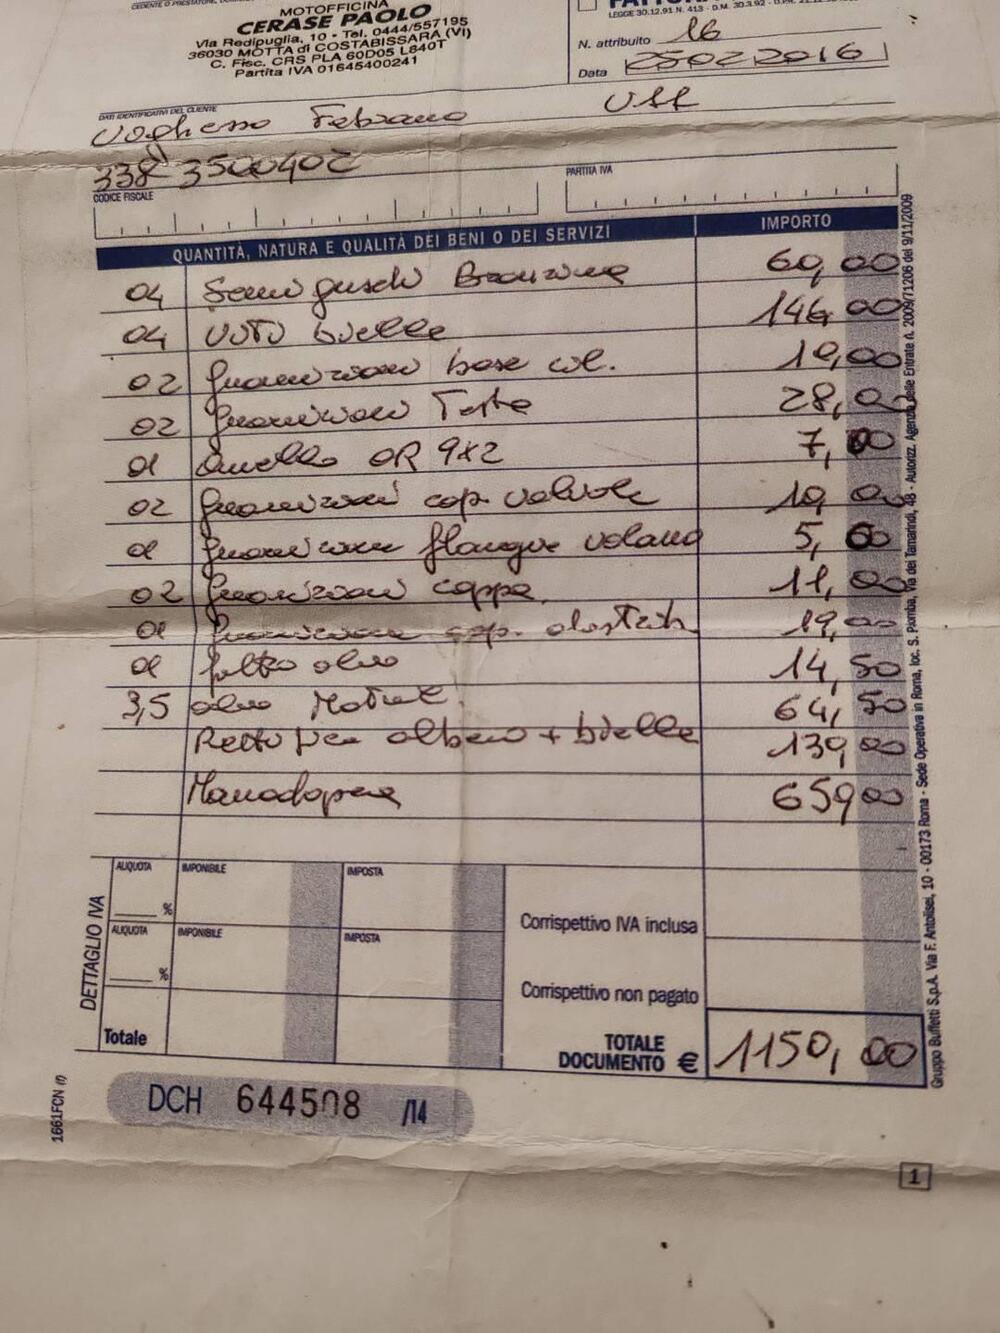 MOTOFFICINA
CERASE PAOLO
Via Redipuglia, 10 - Tel. 0444/557195
36030 MOTTA di COSTABISSARA (VI)
C. Fisc. CRS PLA 60D05 L840T
Partita IVA 01645400241
LEGGE 30.12.91 N. 413 - D.M. 30.3.92
N. attribuito 16
Data 25022016
DATI IDENTIFICATIVI DEL CLIENTE
338 3500402
CODICE FISCALE
PARTITA IVA
QUANTITÀ, NATURA E QUALITÀ DEI BENI O DEI SERVIZI IMPORTO
04 Semi gusch Bronzina 60,00
04 Viti bielle 00
02 Guarnizioni base cil. 19,00
02 Guarnizioni Testa 28,00
01 Anello OR 9x2 7,00
02 Guarnizioni cop. valvole 19 00
01 Guarnizione flangia volano 5,
02 Guarnizioni coppa 11,00
01 Guarnizione cop. 19,00
01 filtro olio 14,50
3,5 olio Motul 64,50
albero + bielle 139,00
Manodopera 659 00
DETTAGLIO IVA
ALIQUOTA IMPONIBILE IMPOSTA
%
Corrispettivo IVA inclusa
ALIQUOTA IMPONIBILE IMPOSTA
%
Corrispettivo non pagato
Totale
TOTALE
DOCUMENTO € 1150,00
DCH 644508 /14
1661FCN (f)
1
Gruppo Buffetti S.p.A. Via F. Antolisei, 10 - 00173 Roma - Sede Operativa in Roma, loc. S. Piomba, Via dei Tamarindi, - Autorizz. Agenzia delle Entrate n. 2009/71206 del 9/11/2009